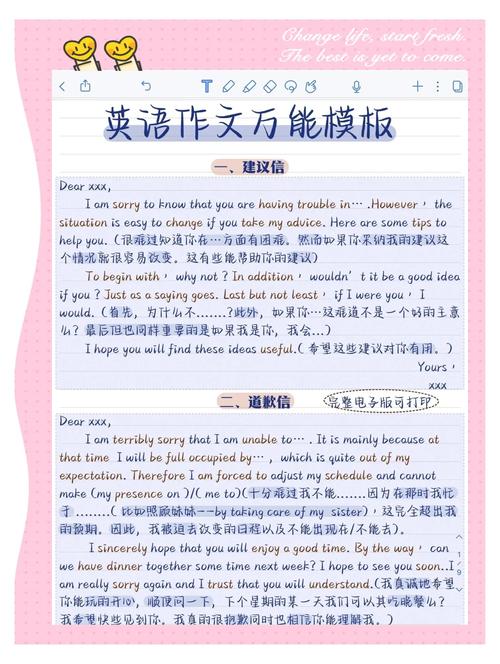 Change life, start fresh.
The best is yet to come.
英语作文万能模板
一、建议信
Dear xxx,
I am sorry to know that you are having trouble in… .However， the
situation is easy to change if you take my advice. Here are some tips to
help you. (很难过知道你在…方面有困难。然而如果你采纳我的建议这
个情况就很容易改变。这有些能帮助你的建议)
To begin with， why not？In addition， wouldn't it be a good idea
if you？Just as a saying goes. Last but not least， if I were you， I
would. (首先，为什么不.......?此外，如果你…这难道不是一个好的主意
么？最后但也同样重要的是如果我是你，我会...)
I hope you will find these ideas useful.( 希望这些建议对你有用。)
Yours，
xxx
二、道歉信
完整电子版可打印
Dear xxx,
I am terribly sorry that I am unable to… . It is mainly because at
that time I will be full occupied by…， which is quite out of my
expectation. Therefore I am forced to adjust my schedule and cannot
make (my presence on )/( me to)(十分难过我不能.......因为在那时我忙
于 ........( 比如照顾妹妹--by taking care of my sister)，这完全超出我
的预期。因此，我被迫去改变的日程以及不能出现在/不能去)。
I sincerely hope that you will enjoy a good time. By the way， can
we have dinner together some time next week? I hope to see you soon..I
am really sorry again and I trust that you will understand.(我真诚地希望
你能玩的开心，顺便问一下，下个星期的某一天我们可以其吃晚餐么？
我希望快些见到你。我真的很抱歉同时也相信你能理解我。)
1
9